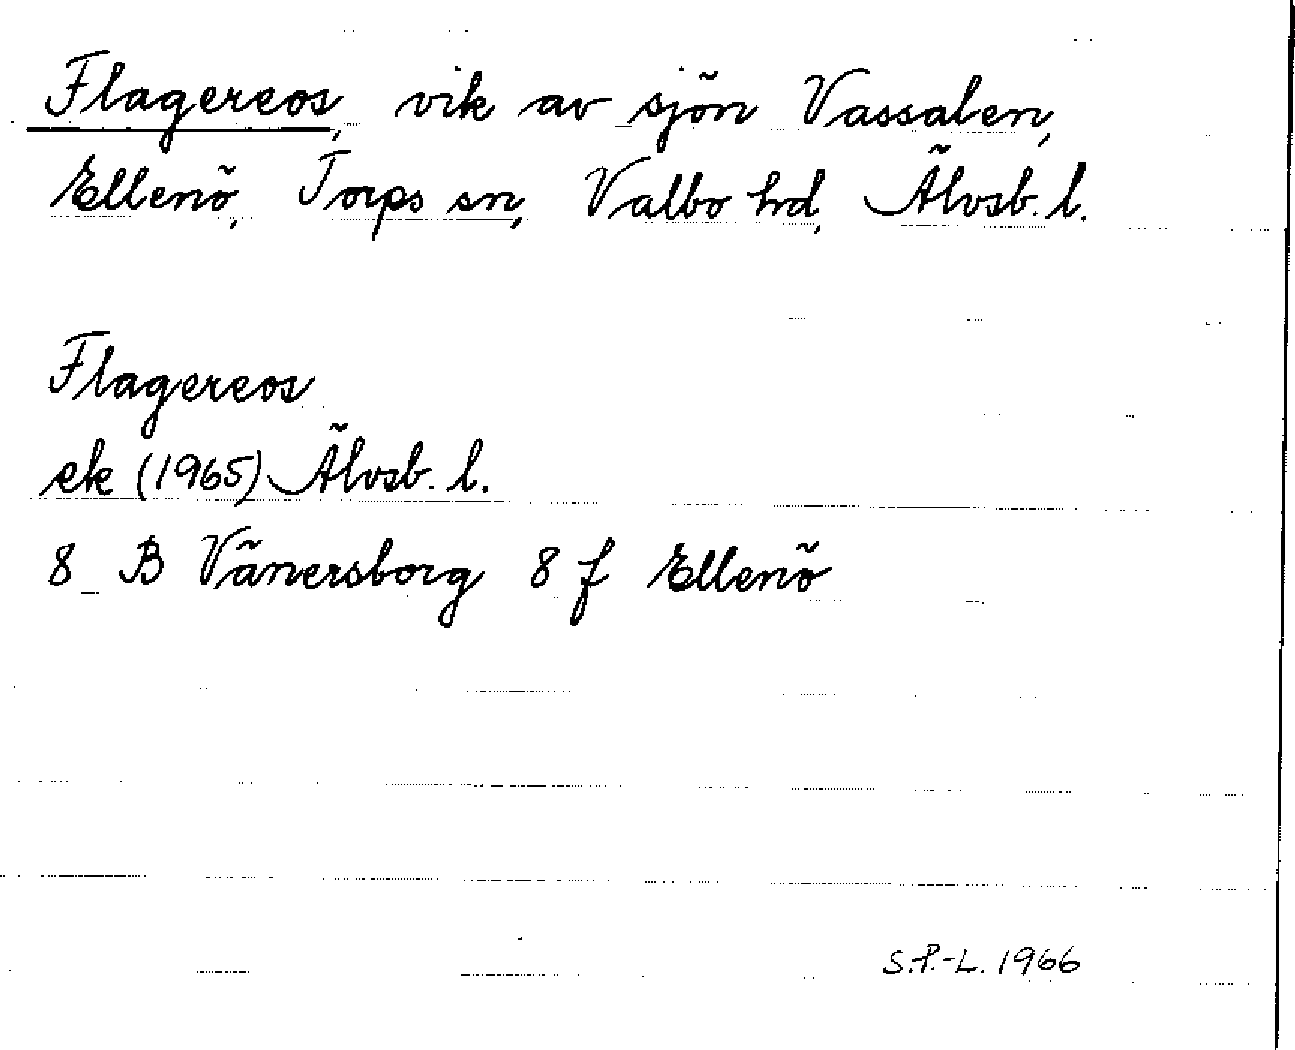 Flagereos, vik av sjön Vassalen,
Ellenö, Torps sn, Valbo hd, Älvsb. l.
Flagereos
ek (1965) Älvsb. l.
8 B Vänersborg 8 f Ellenö
S.P.-L. 1966